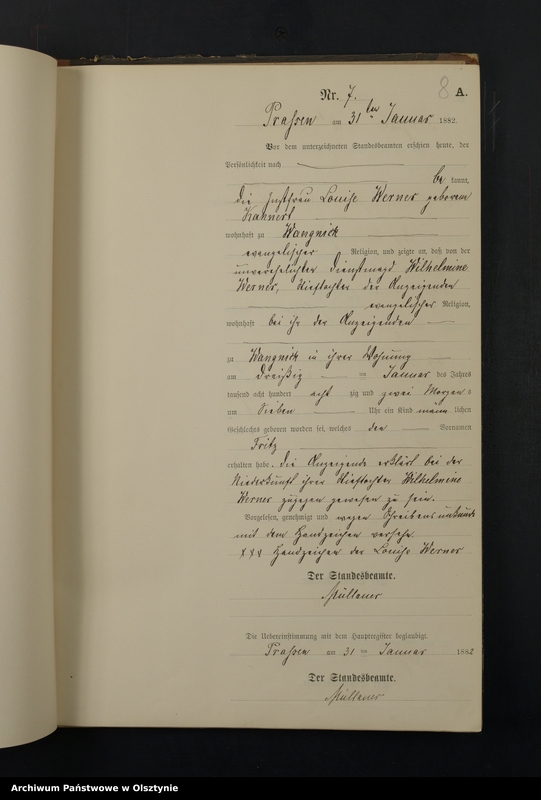 8 A.
Nr. 7.
Prassen am 31 ten Januar 1882.
Vor dem unterzeichneten Standesbeamten erschien heute, der
Persönlichkeit nach
be kannt,
die Instfrau Louise Werner geborene
wohnhaft zu Wangnick
evangelischer Religion, und zeigte an, daß von der
unverehelichten Dienstmagd Wilhelmine
Werner, Stieftochter der Anzeigenden
evangelischer Religion,
wohnhaft bei ihr der Anzeigenden
zu Wangnick in ihrer Wohnung
am dreißig ten Januar des Jahres
tausend acht hundert acht zig und zwei Morgens
um sieben Uhr ein Kind männ lichen
Geschlechts geboren worden sei, welches den Vornamen
Fritz
erhalten habe. Die Anzeigende erklärt bei der
Niederkunft ihrer Stieftochter Wilhelmine
Werner zugegen gewesen zu sein.
Vorgelesen, genehmigt und wegen Schreibensunkunde
mit dem Handzeichen versehen.
+++ Handzeichen der Louise Werner
Der Standesbeamte.
Die Uebereinstimmung mit dem Hauptregister beglaubigt.
Prassen am 31 ten Januar 1882
Der Standesbeamte.
Archiwum Państwowe w Olsztynie